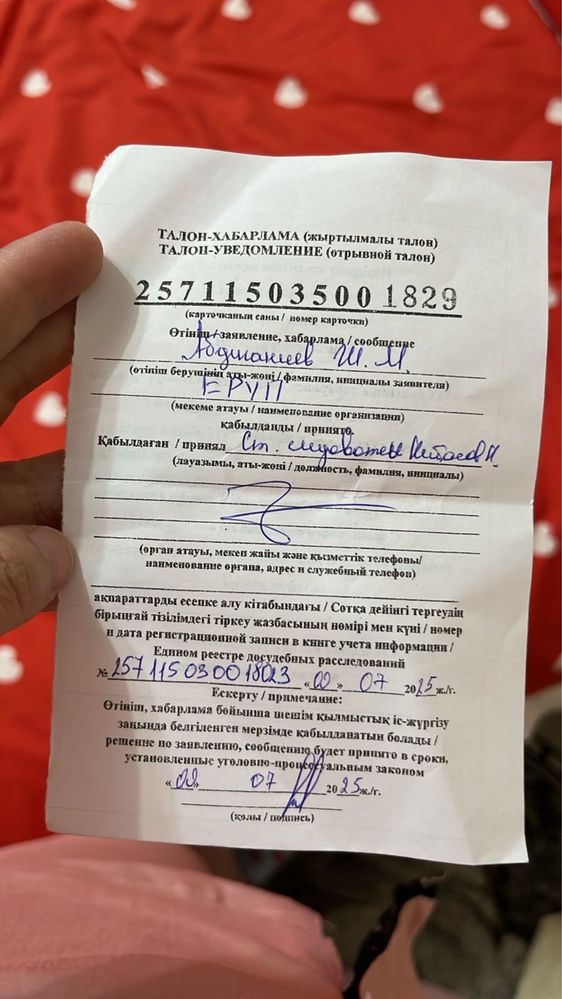 ТАЛОН-ХАБАРЛАМА (жыртылмалы талон)
ТАЛОН-УВЕДОМЛЕНИЕ (отрывной талон)
257115035001829
(карточканың саны / номер карточки)
Өтініш / заявление, хабарлама / сообщение
Ш. М.
(өтініш берушінің аты-жөні / фамилия, инициалы заявителя)
ЕРУП
(мекеме атауы / наименование организации)
қабылданды / принято.
Қабылдаған / принял Ст. следователь
(лауазымы, аты-жөні / должность, фамилия, инициалы)
(орган атауы, мекен жайы және қызметтік телефоны/
наименование органа, адрес и служебный телефон)
ақпараттарды есепке алу кітабындағы / Сотқа дейінгі тергеудің
бірыңғай тізілімдегі тіркеу жазбасының нөмірі мен күні / номер
и дата регистрационной записи в книге учета информации /
Едином реестре досудебных расследований
№ 257115030018023 « » 07 2025 ж./г.
Ескерту / примечание:
Өтініш, хабарлама бойынша шешім қылмыстық іс-жүргізу
заңында белгіленген мерзімде қабылданатын болады /
решение по заявлению, сообщению будет принято в сроки,
установленные уголовно-процессуальным законом
« » 07 2025 ж./г.
(қолы / подпись)